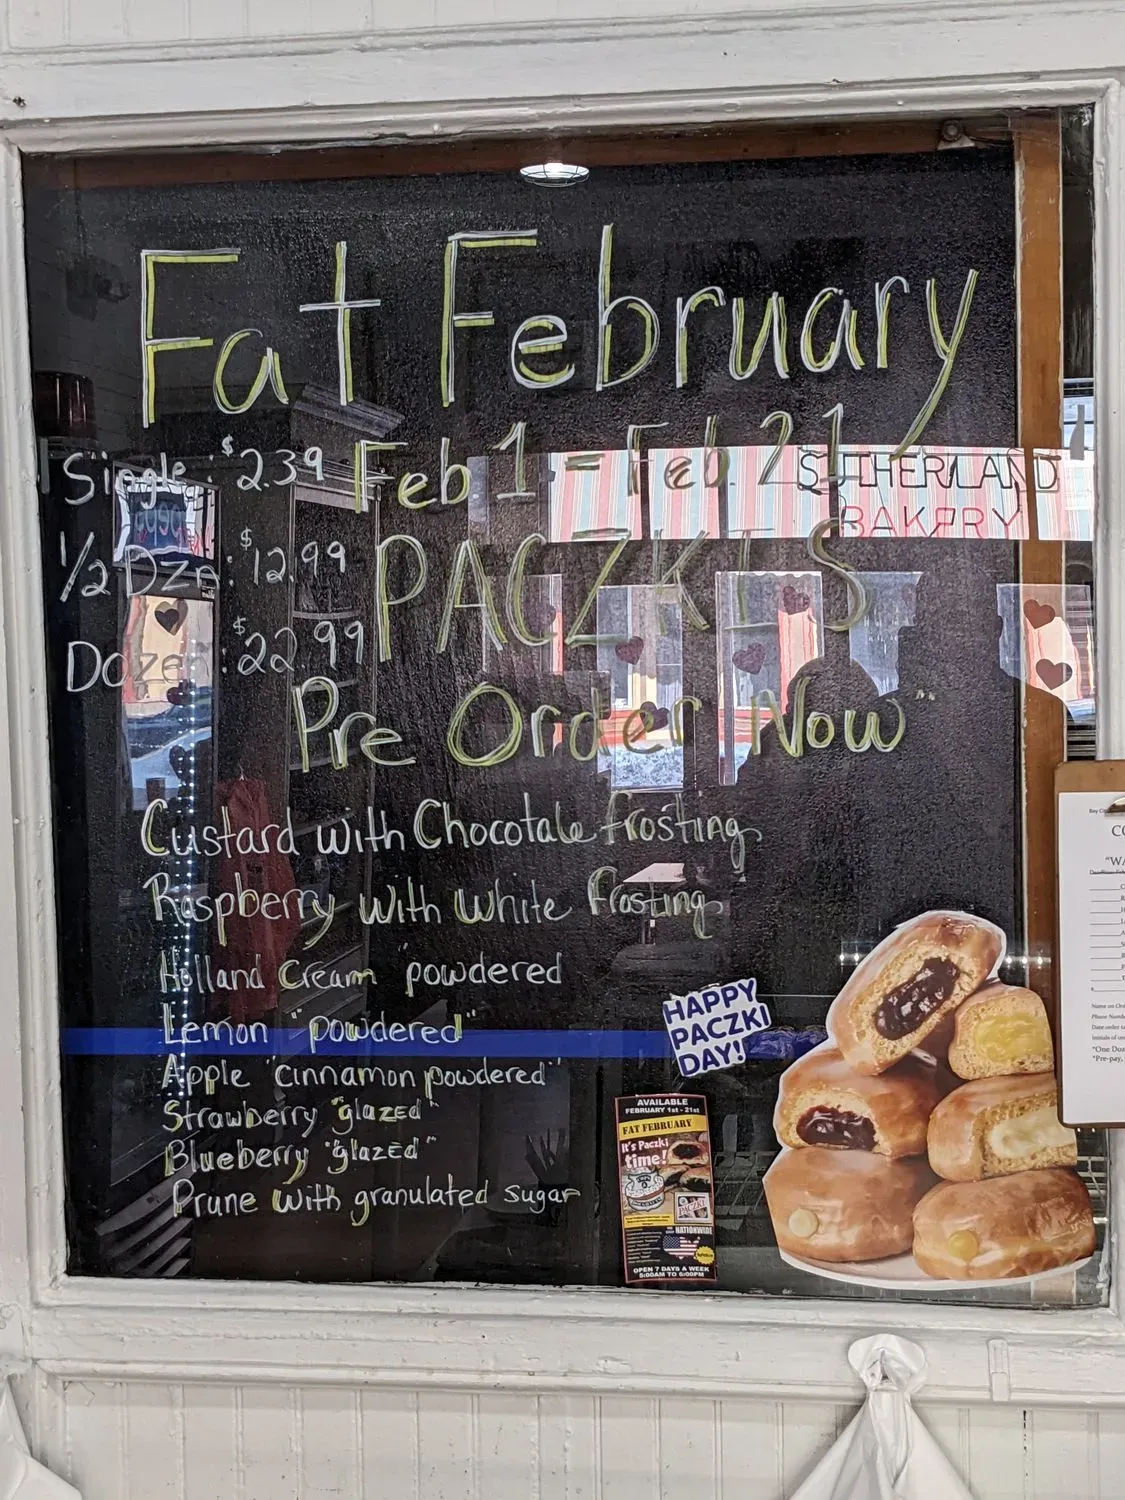 Fat February
Feb 1 - Feb. 21
Single: $2.39
1/2 Dzn: $12.99
Dozen: $22.99
PACZKIS
Pre Order Now"
SUTHERLAND
BAKERY
Custard with Chocotale frosting
Raspberry with White frosting
Holland Cream "powdered
Lemon "powdered"
Apple "cinnamon powdered"
Strawberry "glazed"
Blueberry "glazed"
Prune with granulated sugar
HAPPY
PACZKI
DAY!
AVAILABLE
FEBRUARY 1st - 21st
FAT FEBRUARY
It's Paczki
time!
PACZKI
NATIONWIDE
OPEN 7 DAYS A WEEK
5:00AM TO 6:00PM
Bay Ci
CO
"WA
Name on Ord
Phone Numb
Date order ta
Initials of
"One Doz
*Pre-pay,